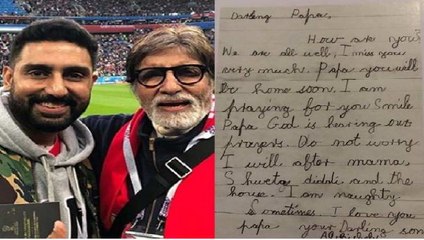 Darling Papa,
How are you?
We are all well. I miss you
very much. Papa you will
be home soon. I am
praying for you Smile
Papa God is hearing our
prayers. Do not worry
I will after mama,
Shweta diddi and the
house. I am naughty
Sometimes. I love you
papa your Darling son